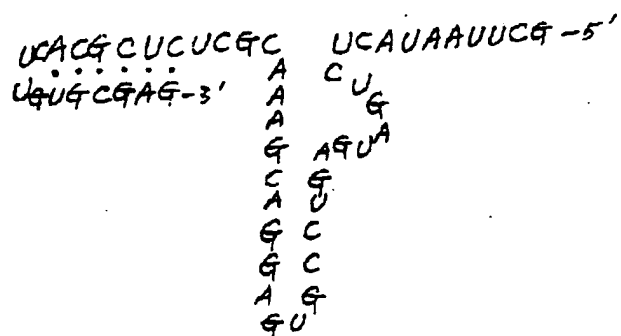 UCACGCUCUCGC UCAUAAUUCG-5'
A C
UGUGCGAG-3' U
A G
A A
G AGU
C G
A U
G C
G C
A G
GU